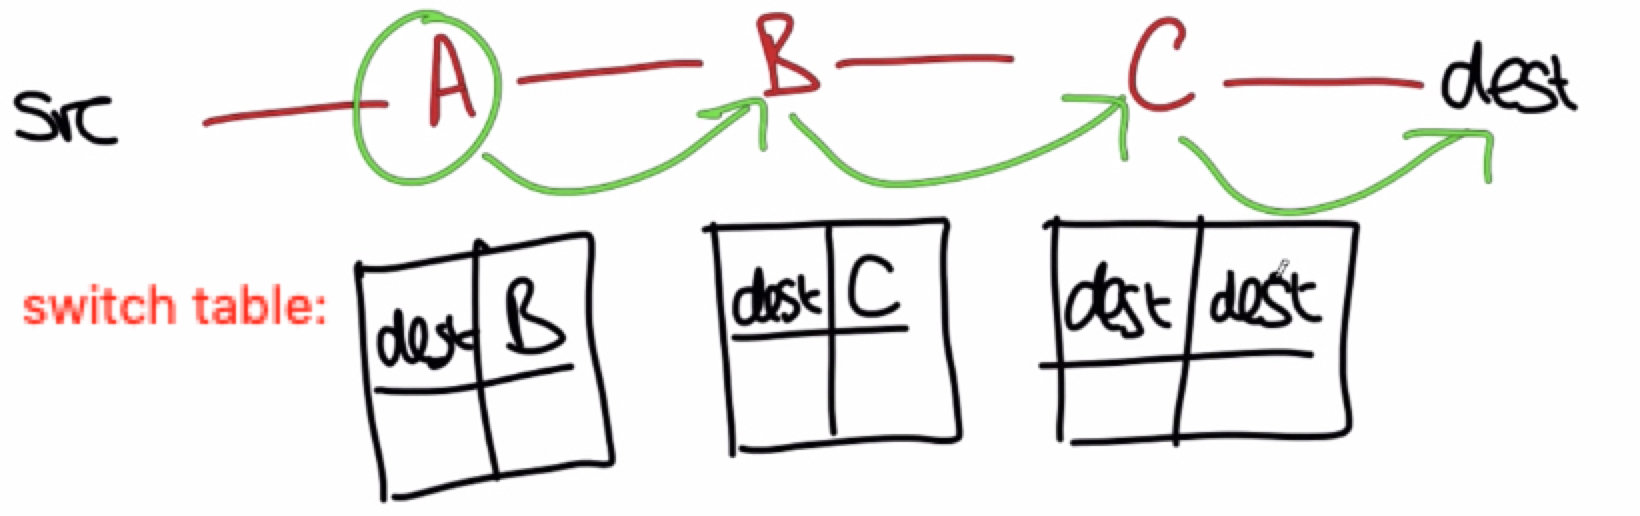 src A B C dest
switch table:
dest B
dest C
dest dest